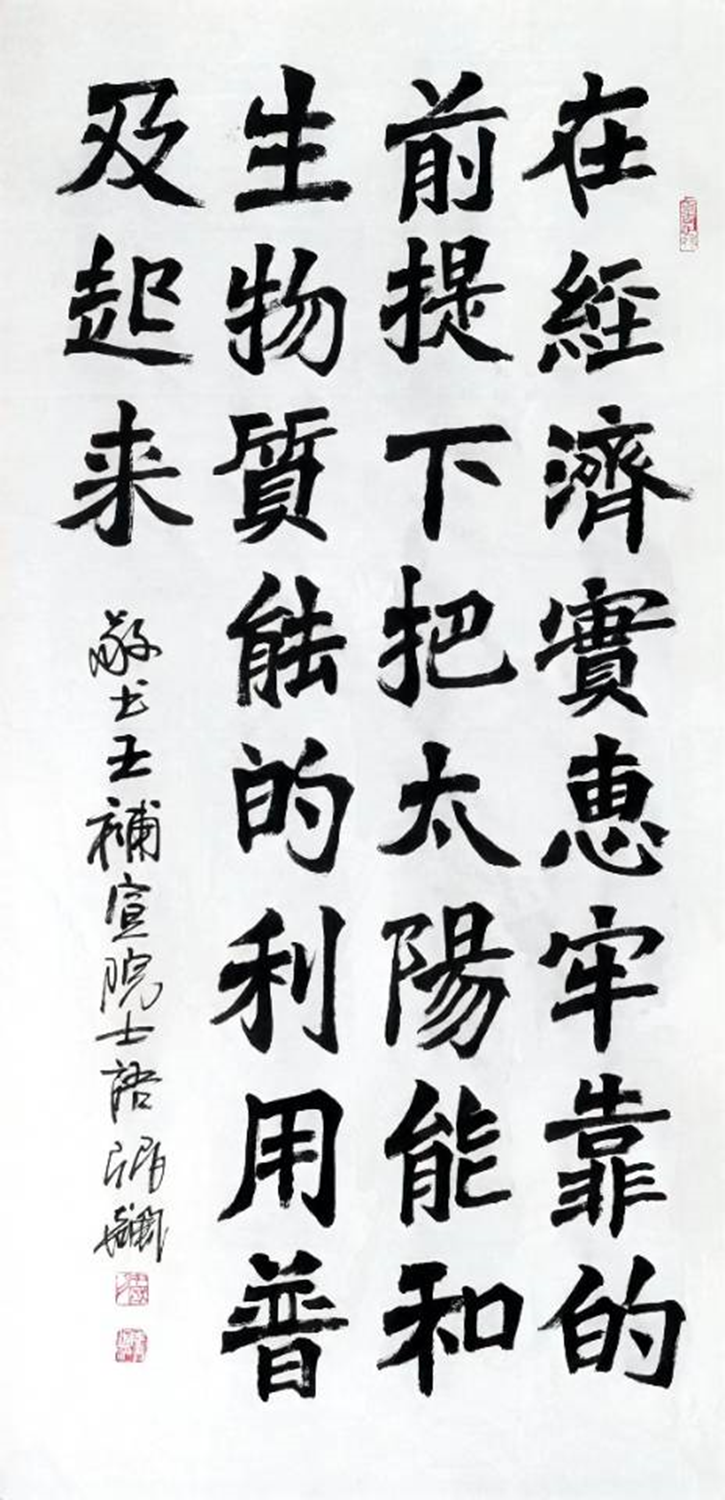 在經濟實惠牢靠的
前提下把太陽能和
生物質能的利用普
及起来
敬书王補宣院士語